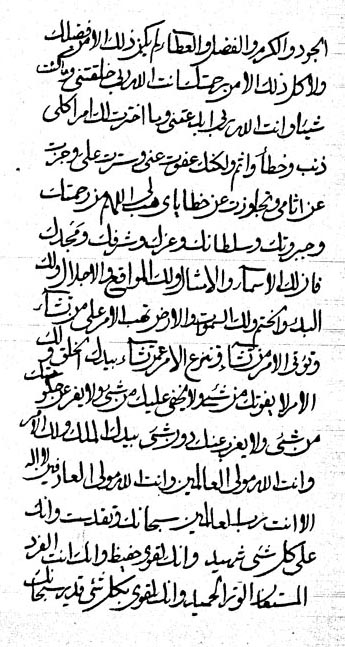 الجود والكرم والفضل والعطا ولم يكن ذلك الا من فضلك
ولا كل ذلك الا من رحمتك انت الله ربى خلقتنى ولم اكن
شيئا وانت الله ربى ابدعتنى وما اخترت لك امرا كلى
ذنب وخطأ واثم ولكنك عفوت عنى وسترت على وجزت
عن اثامى وتجاوزت عن خطاياى هب لى اللهم من رحمتك
وجبروتك وسلطانك وعزك وشرفك ومجدك
فان لك الاسماء والامثال ولك المواقع والاجلال ولك
البدء والختم ولك السموات والارض تهب الامر على من تشاء
وتؤتى الامر من تشاء وتنزع الامر عمن تشاء بيدك الخلق ولك
الامر لا يفوتك من شئ ولا يخفى عليك من شئ ولا يعزب
من شئ ولا يعزب عنك دون شئ بيدك الملك ولك الامر
وانت الله مولى العالمين وانت الله مولى العارفين لا اله
الا انت رب العالمين سبحانك وتقدست وانك
على كل شئ شهيد وانك لقوى حفيظ وانك انت الفرد
المستعان الوتر الحميد وانك لقوى بكل شئ قدير سبحانك